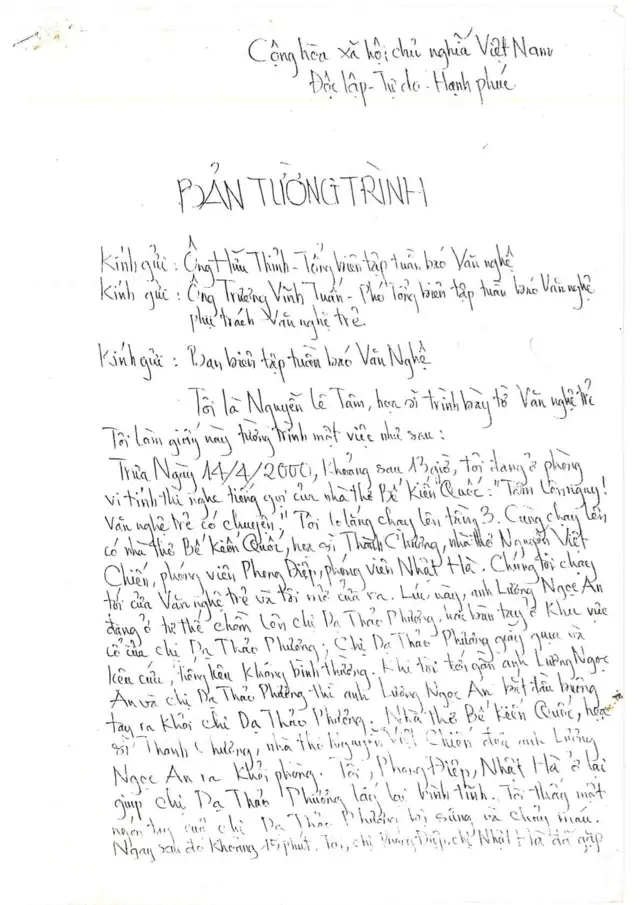 Cộng hòa xã hội chủ nghĩa Việt Nam
Độc lập - Tự do - Hạnh phúc
BẢN TƯỜNG TRÌNH
Kính gửi : Ông Hữu Thỉnh - Tổng biên tập tuần báo Văn nghệ
Kính gửi : Ông Trương Vĩnh Tuấn - Phó Tổng biên tập tuần báo Văn nghệ
phụ trách Văn nghệ trẻ.
Kính gửi : Ban biên tập tuần báo Văn Nghệ
Tôi là Nguyễn Lê Tâm, họa sĩ trình bày tờ Văn nghệ trẻ
Tôi làm giấy này tường trình một việc như sau :
Trưa Ngày 14/4/2000, Khoảng sau 13 giờ, tôi đang ở phòng
vi tính thì nghe tiếng gọi của nhà thơ Bế Kiến Quốc : "Tâm lên ngay!
Văn nghệ trẻ có chuyện;" Tôi lo lắng chạy lên tầng 3. Cùng chạy lên
có nhà thơ Bế Kiến Quốc, họa sĩ Thành Chương, nhà thơ Nguyễn Việt
Chiến, phóng viên Phong Điệp, phóng viên Nhật Hà. Chúng tôi chạy
tới cửa Văn nghệ trẻ và tôi mở cửa ra. Lúc này, anh Lương Ngọc An
đang ở tư thế chồm lên chị Dạ Thảo Phương, hai bàn tay ở khu vực
cổ của chị Dạ Thảo Phương; Chị Dạ Thảo Phương giãy giụa và
kêu cứu, tiếng kêu không bình thường. Khi tôi tới gần anh Lương Ngọc
An và chị Dạ Thảo Phương thì anh Lương Ngọc An bắt đầu buông
tay ra khỏi chị Dạ Thảo Phương. Nhà thơ Bế Kiến Quốc, họa
sĩ Thành Chương, nhà thơ Nguyễn Việt Chiến đưa anh Lương
Ngọc An ra khỏi phòng. Tôi, Phong Điệp, Nhật Hà ở lại
giúp chị Dạ Thảo Phương lấy lại bình tĩnh. Tôi thấy một
ngón tay của chị Dạ Thảo Phương bị sưng và chảy máu.
Ngay sau đó khoảng 15 phút, Tôi, chị Phong Điệp, chị Nhật Hà đã gặp